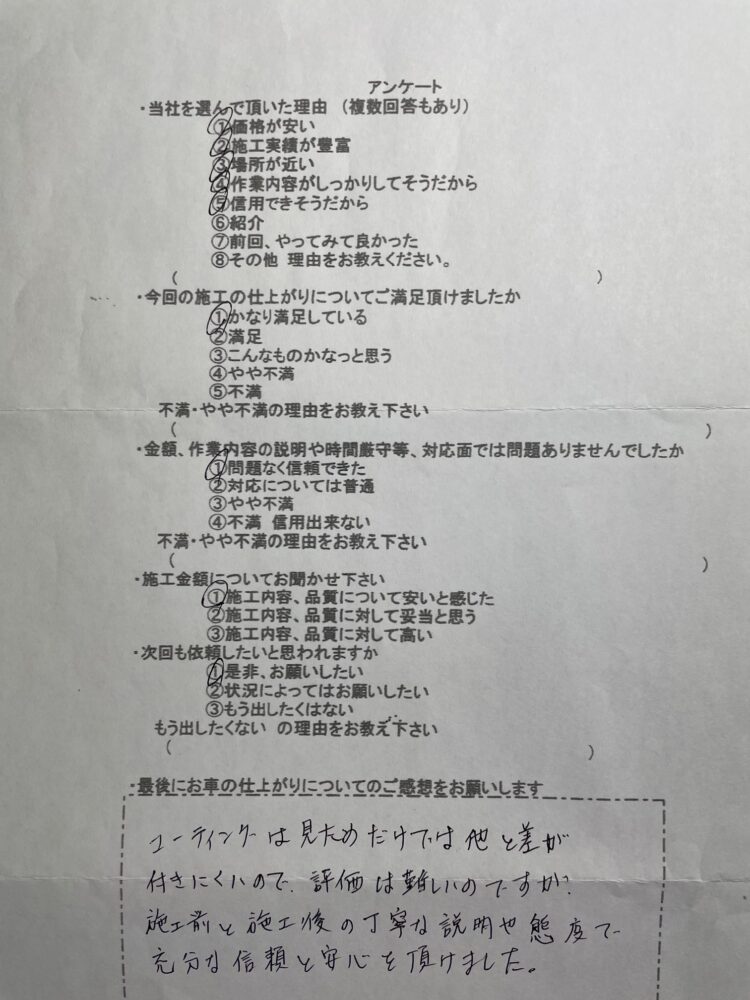 アンケート
・当社を選んで頂いた理由 (複数回答もあり)
①価格が安い
②施工実績が豊富
③場所が近い
④作業内容がしっかりしてそうだから
⑤信用できそうだから
⑥紹介
⑦前回、やってみて良かった
⑧その他 理由をお教えください。
( )
・今回の施工の仕上がりについてご満足頂けましたか
①かなり満足している
②満足
③こんなものかなっと思う
④やや不満
⑤不満
不満・やや不満の理由をお教え下さい
( )
・金額、作業内容の説明や時間厳守等、対応面では問題ありませんでしたか
①問題なく信頼できた
②対応については普通
③やや不満
④不満 信用出来ない
不満・やや不満の理由をお教え下さい
( )
・施工金額についてお聞かせ下さい
①施工内容、品質について安いと感じた
②施工内容、品質に対して妥当と思う
③施工内容、品質に対して高い
・次回も依頼したいと思われますか
①是非、お願いしたい
②状況によってはお願いしたい
③もう出したくはない
もう出したくない の理由をお教え下さい
( )
・最後にお車の仕上がりについてのご感想をお願いします
コーティングは見ためだけでは他と差が
付きにくいので、評価は難しいのですが、
施工前と施工後の丁寧な説明や態度で
充分な信頼と安心を頂けました。